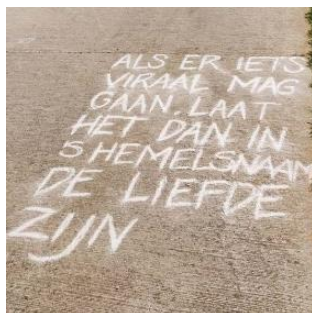 ALS ER IETS
VIRAAL MAG
GAAN, LAAT
HET DAN IN
'S HEMELSNAAM
DE LIEFDE
ZIJN